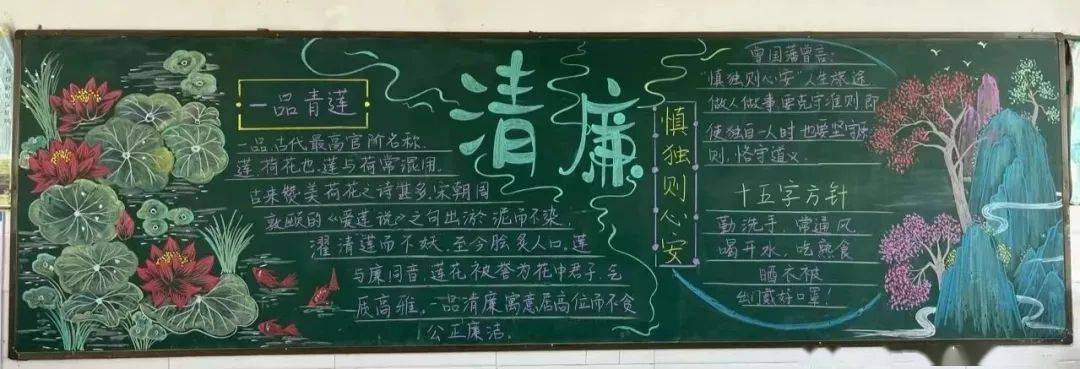 一品青莲
一品,古代最高官阶名称.
莲,荷花也,莲与荷常混用.
古来赞美荷花之诗甚多,宋朝周
敦颐的《爱莲说》之句出淤泥而不染,
濯清莲而不妖,至今脍炙人口,莲
与廉同音,莲花被誉为花中君子,气
质高雅,一品清廉寓意居高位而不贪
公正廉洁.
清廉
慎独则心安
曾国藩曾言:
"慎独则心安"人生旅途
做人做事要克守准则即
使独自一人时也要坚守原
则,恪守道义.
十五字方针
勤洗手,常通风
喝开水,吃熟食
晒衣被
出门戴好口罩!